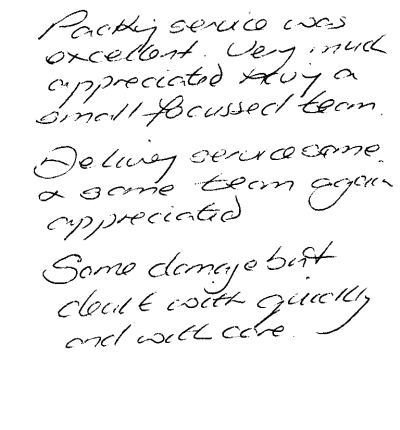 Packing service was
excellent. Very much
appreciated having a
small focussed team.
Delivery service same
& same team again
appreciated
Some damage but
dealt with quickly
and with care.